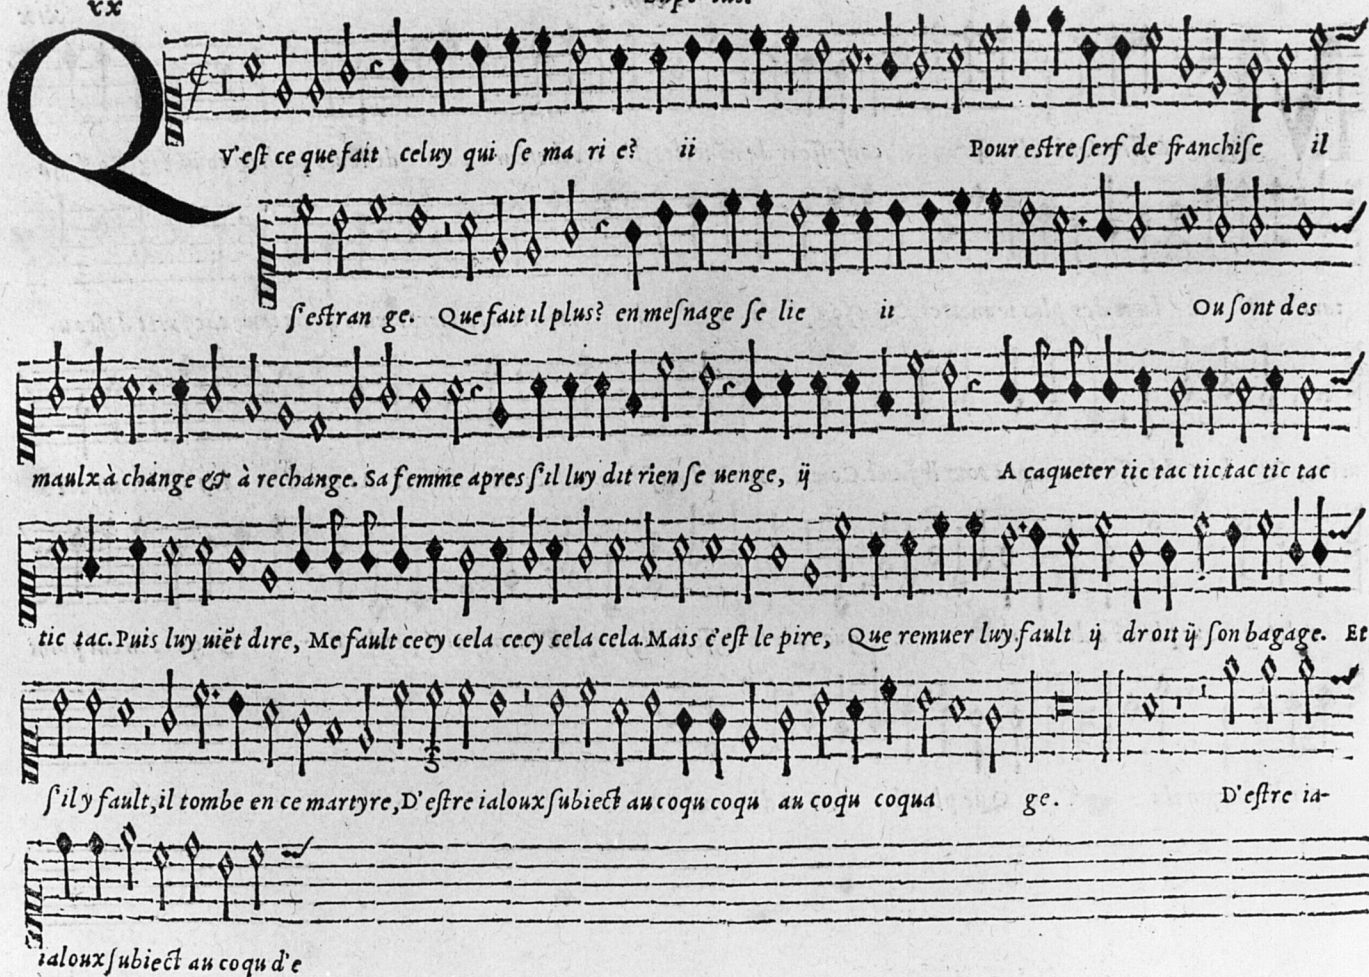 xx
QV'est ce que fait celuy qui se ma ri e? ii Pour estre serf de franchise il
s'estran ge. Que fait il plus? en mesnage se lie ii Ou sont des
maulx à change & à rechange. Sa femme apres s'il luy dit rien se uenge, ij A caqueter tic tac tic tac tic tac
tic tac. Puis luy uiẽt dire, Me fault cecy cela cecy cela cela. Mais c'est le pire, Que remuer luy fault ij droit ij son bagage. Et
s'il y fault, il tombe en ce martyre, D'estre ialoux subiect au coqu coqu au coqu coqua ge. D'estre ia-
ialoux subiect au coqu d'e